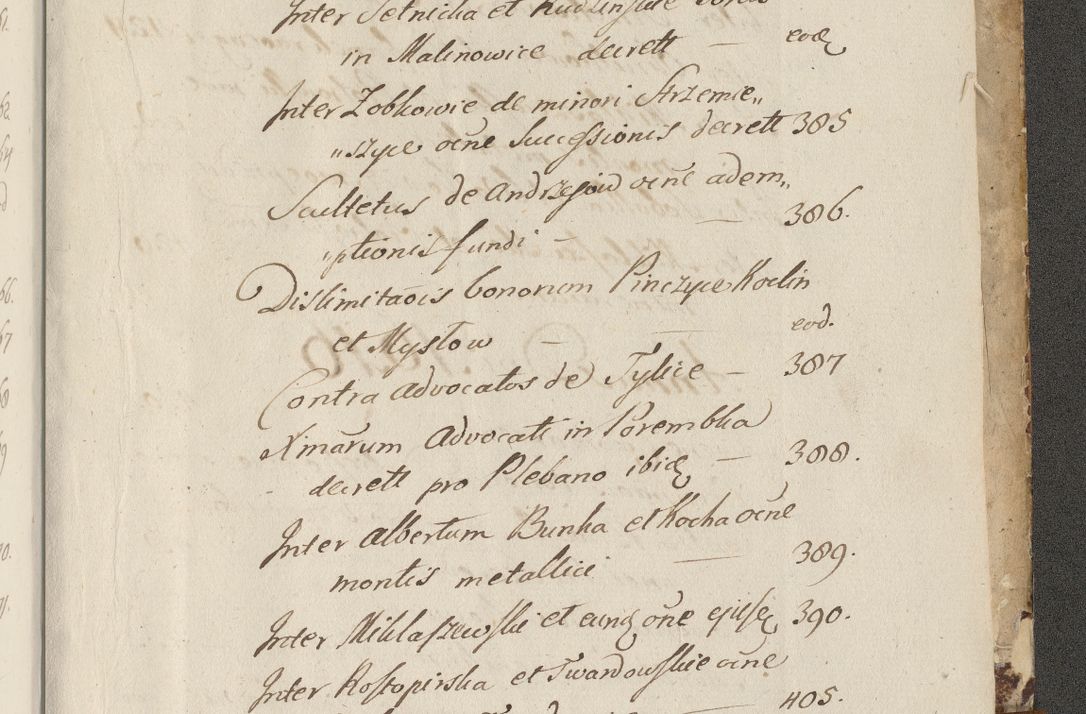 Inter Setnicka et
in Malinowice decrett — eod
Inter Zobkowie de minori Strzemie„
„szyce ocne Successionis decrett 385
Scultetus de Andrzejow ocne adem„
„ptionis fundi — — 386.
Dislimitaōis bonorum Pinczyce Koclin
et Mysłow — — eod.
Contra Advocatos de Tylice — 387
Xmarum Advocati in Porembka
- decrett pro Plebano ibid — 388.
Inter Albertum Bunka et Kocha ocne
montis metallici — 389.
Inter Miklaszewski et eund one ejusd 390.
Inter Rostopirska et Twardowskie ocne
405.